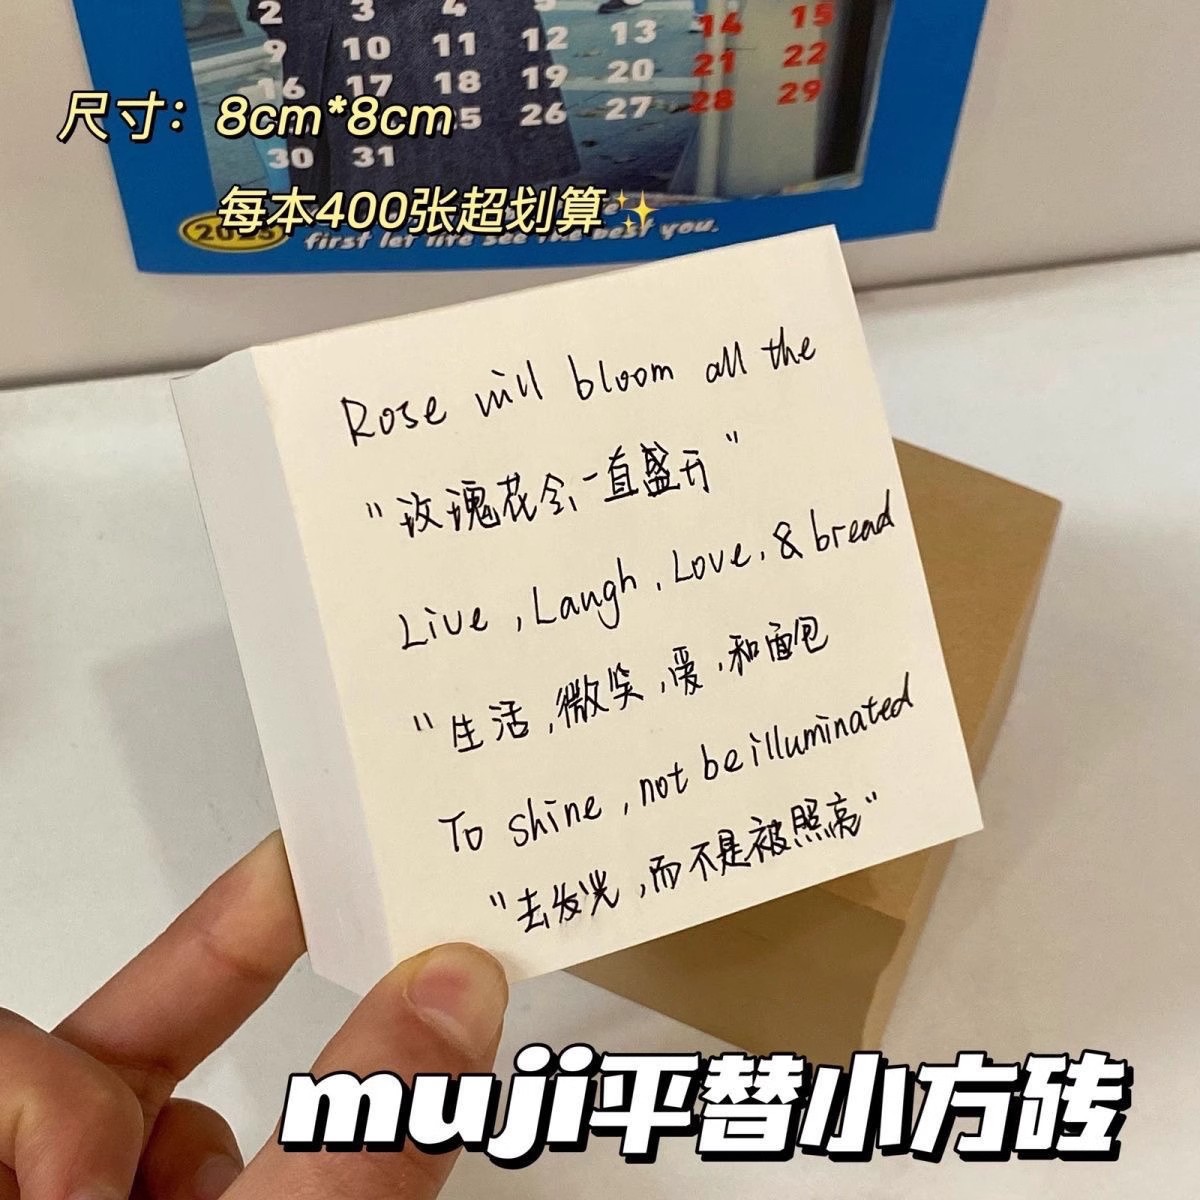 2 3 4 5 6
14 15
9 10 11 12 13 21 22
16 17 18 19 20 28 29
尺寸：8cm*8cm
25 26 27
30 31
每本400张超划算✨
2025
first let life see the best you.
Rose will bloom all the
"玫瑰花会一直盛开"
Live, Laugh, Love, & bread
"生活,微笑,爱,和面包
To shine, not be illuminated
"去发光,而不是被照亮"
muji平替小方砖